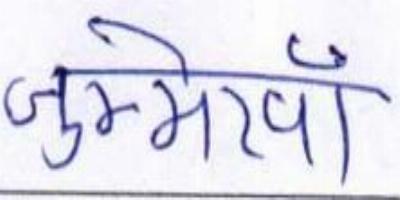 जुम्मेखाँ